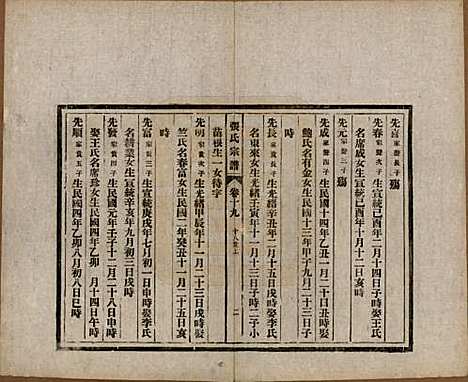 先喜家發長子殤
先春家發次子生宣統己酉年二月十四日亥時娶王氏
名席成女生宣統己酉年十月十一日亥時
先元家發三子殤
先成家發四子生光緒辛丑年一月二十日戌時娶
鮑氏名有金女生民國十三年甲子九月二十三日子
時
先長家貴長子生光緒辛丑年二月十五日戌時娶
名東來女生光緒壬寅年十一月十三日子時二子小
苗根生一女待字
張氏宗譜
卷十九
二
先明家貴次子生光緒甲辰年十一月二十三日戌時娶
竺氏名春富女生民國二年癸丑十一月二十五日亥
時
先富家貴三子生宣統庚戌年七月初一日申時娶李氏
名精業女生辛亥年九月初三日戌時
先發家貴四子生民國元年壬子十二月二十八日申時
娶王氏名席珍女生民國四年乙卯月十四日午時
先順家貴五子生民國四年乙卯八月初八日巳時